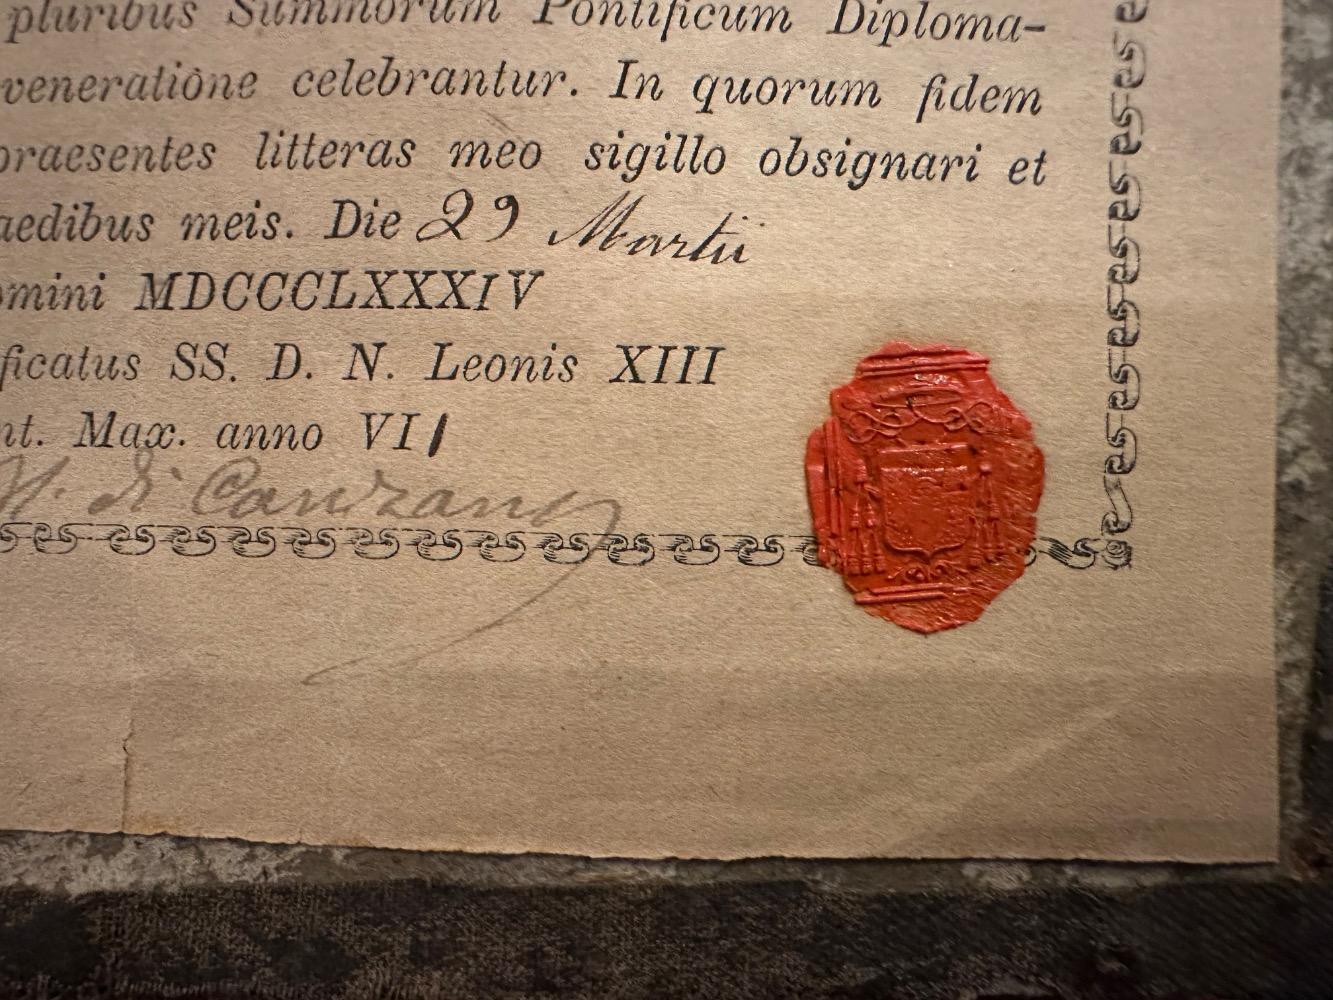 pluribus Summorum Pontificum Diploma-
veneratione celebrantur. In quorum fidem
praesentes litteras meo sigillo obsignari et
aedibus meis. Die 29 Martii
omini MDCCCLXXXIV
ficatus SS. D. N. Leonis XIII
nt. Max. anno VII
di Canzano